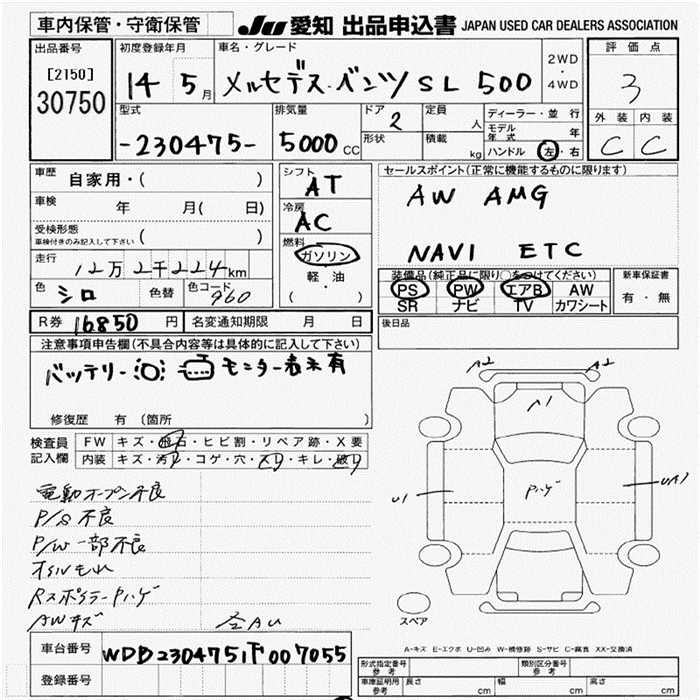 車内保管・守衛保管
JU 愛知 出品申込書 JAPAN USED CAR DEALERS ASSOCIATION
出品番号
[2150]
30750
初度登録年月
14 5月
車名・グレード
メルセデス・ベンツ SL 500
2WD
・
4WD
評価点
3
型式
-230475-
排気量
5000cc
ドア
2
形状
定員
人
積載
kg
ディーラー・並行
モデル年式 年
ハンドル 左・右
外装 内装
C C
車歴 自家用・( )
車検 年 月( 日)
受検形態
車検付きのみ記入して下さい ( )
走行 12万2千224km
色 シロ 色替 色コード 960
シフト
AT
冷房
AC
燃料
ガソリン
軽・油
( )
セールスポイント(正常に機能するものに限ります)
AW AMG
NAVI ETC
装備品(純正品に限り○をつけてください)
PS PW エアB AW
SR ナビ TV カワシート
新車保証書
有・無
R券 16850円 名変通知期限 月 日
後日品
注意事項申告欄(不具合内容等は具体的に記入して下さい)
バッテリー モニター表示有
修復歴 有 (箇所 )
検査員記入欄
FW キズ・飛石・ヒビ割・リペア跡・X要
内装 キズ・汚れ・コゲ・穴・スリ・キレ・破れ
電動オープン不良
P/S 不良
P/W 一部不良
オイルもれ
Rスポイラー Pハゲ
AWキズ 全AU
A2 A2
A1
U1 Pハゲ UA1
スペア
A-キズ E-エクボ U-凹み W-補修跡 S-サビ C-腐食 XX-交換済
車台番号 WDB2304751F007055
登録番号
形式指定番号 参考 類別区分番号 参考
車庫証明用 参考 長さ cm 幅 cm 高さ cm